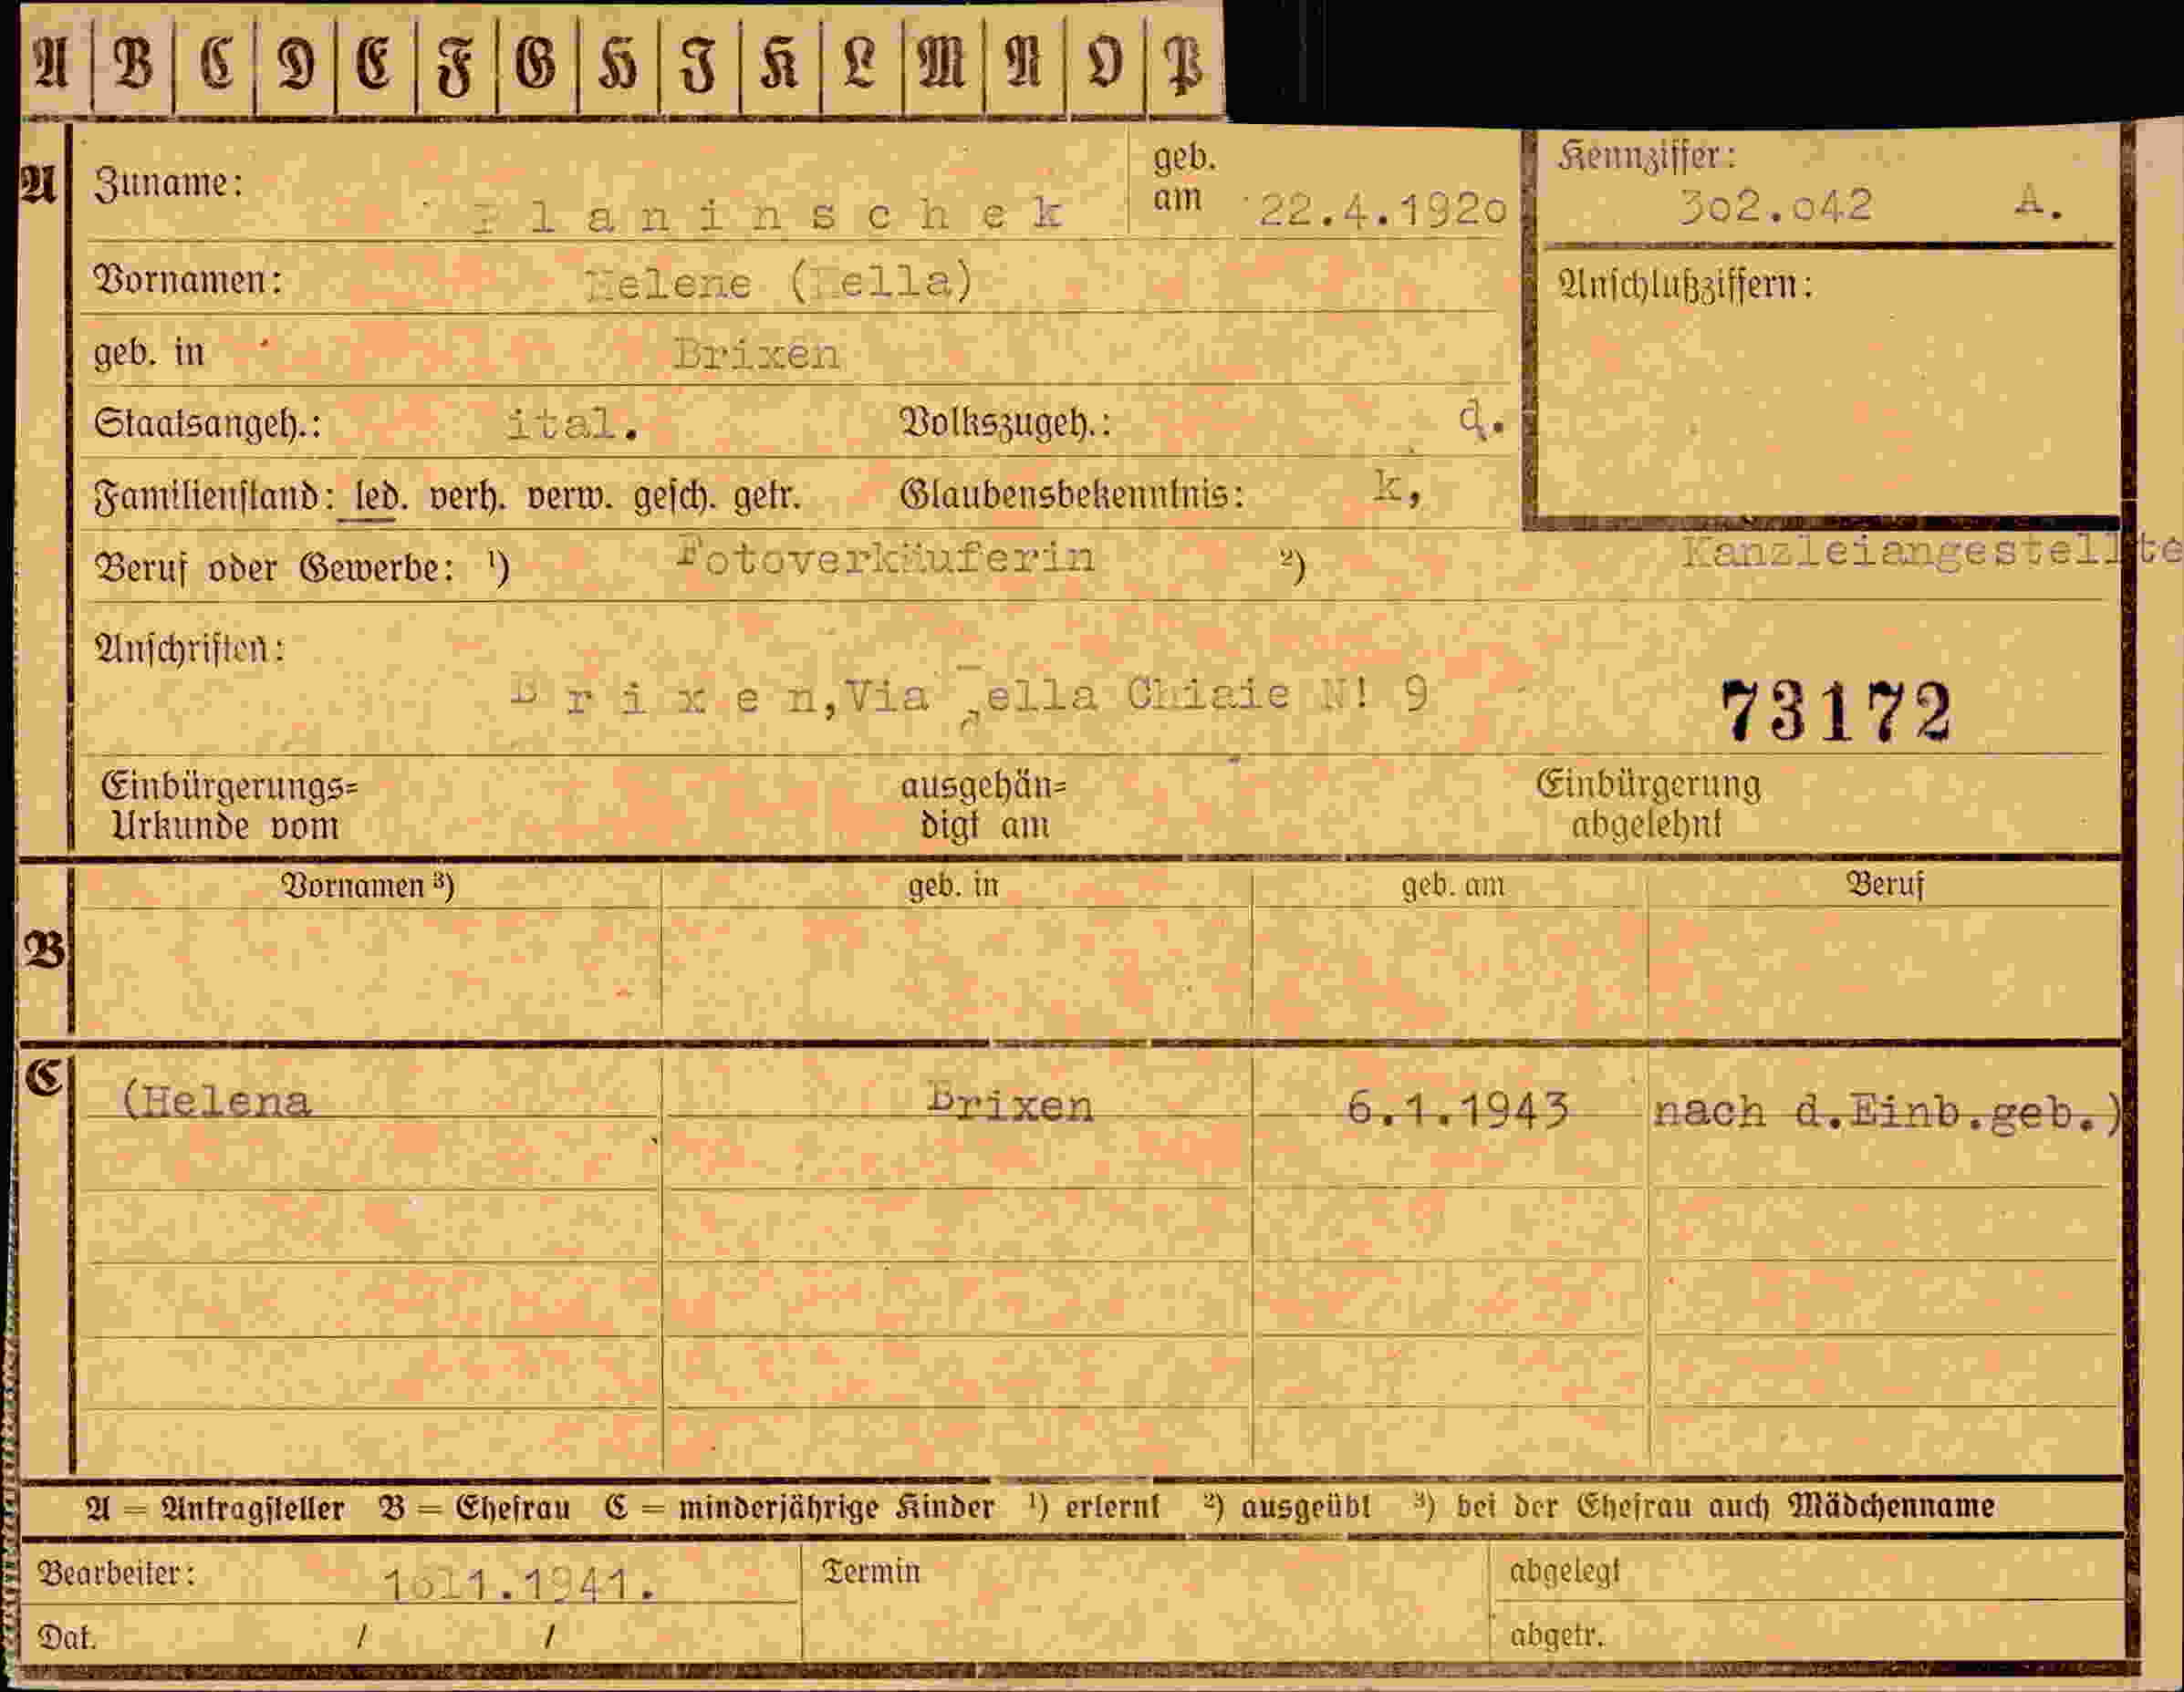 A B C D E F G H J K L M N O P
A Zuname: Planinschek geb. am 22.4.1920 Kennziffer: 302.042 A.
Vornamen: Helene (Hella) Anschlußziffern:
geb. in Brixen
Staatsangeh.: ital. Volkszugeh.: d.
Familienstand: led. verh. verw. gesch. getr. Glaubensbekenntnis: k,
Beruf oder Gewerbe: ¹) Fotoverkäuferin ²) Kanzleiangestellte
Anschriften:
Brixen, Via della Chiaie N! 9 73172
Einbürgerungs= Urkunde vom ausgehän= digt am Einbürgerung abgelehnt
Vornamen ³) geb. in geb. am Beruf
B
C (Helena Brixen 6.1.1943 nach d.Einb.geb.)
A = Antragsteller B = Ehefrau C = minderjährige Kinder ¹) erlernt ²) ausgeübt ³) bei der Ehefrau auch Mädchenname
Bearbeiter: Termin abgelegt
Dat. / / abgetr.